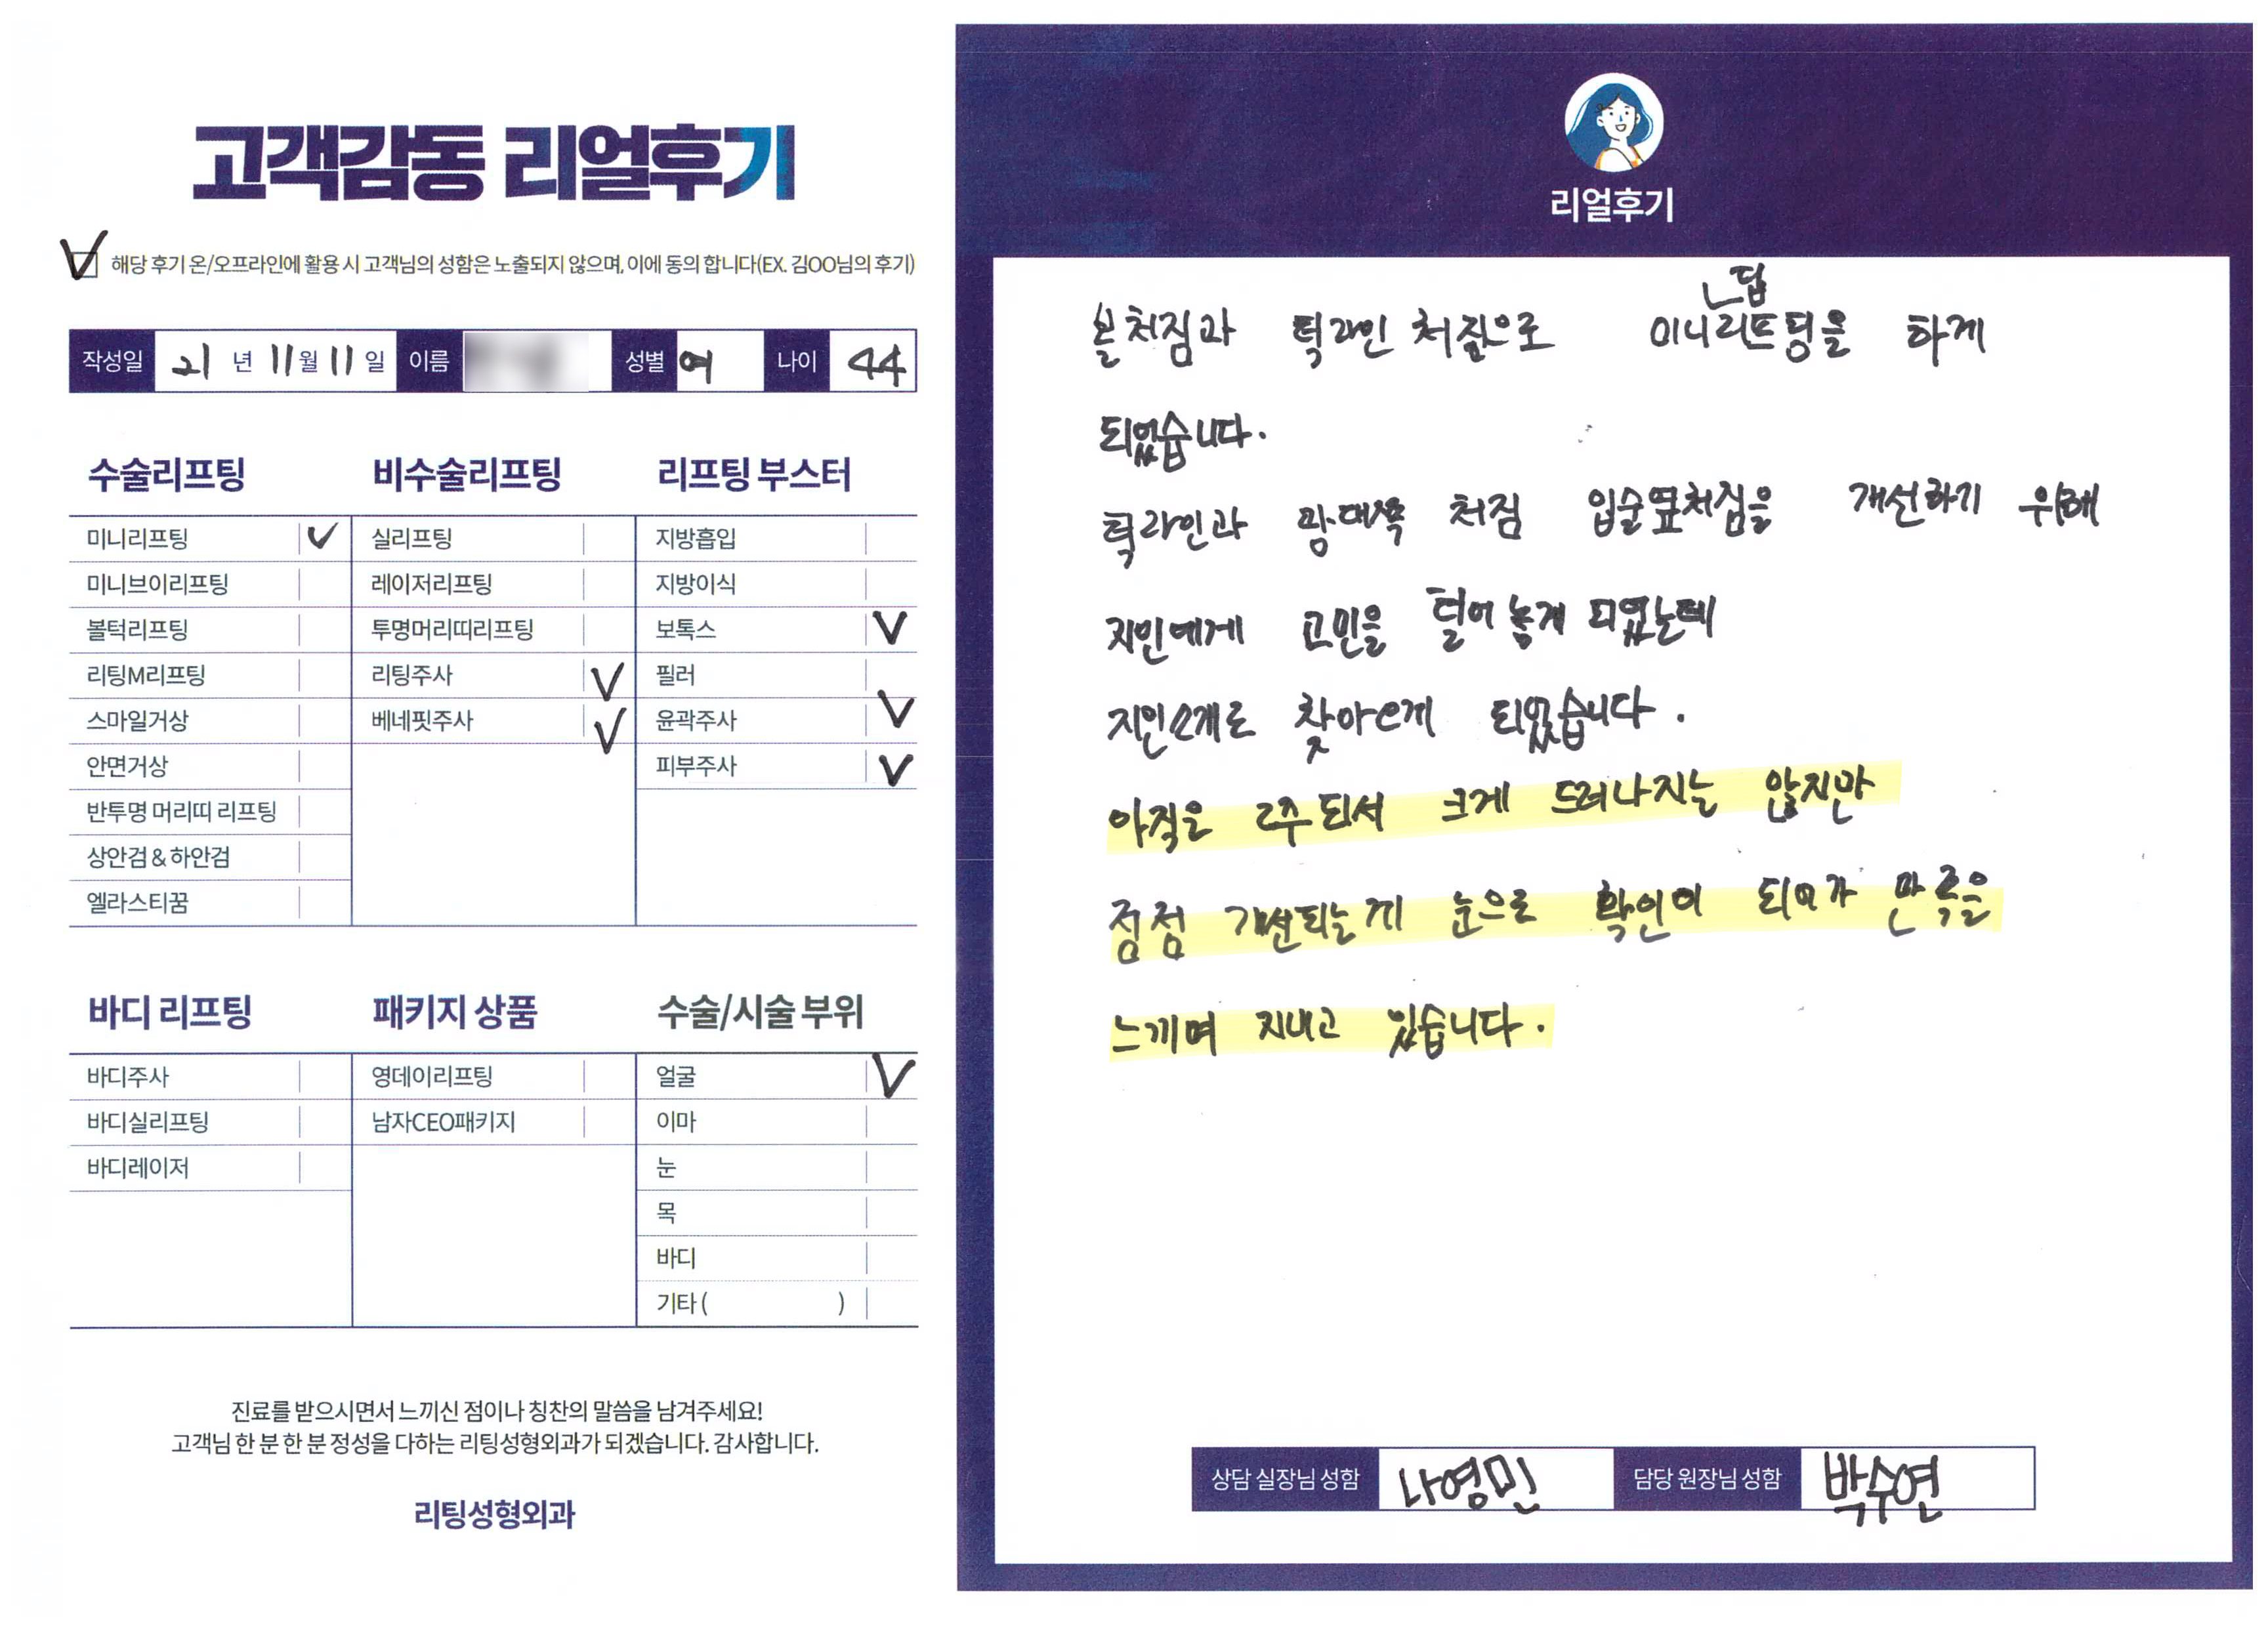 고객감동 리얼후기
V 해당 후기 온/오프라인에 활용 시 고객님의 성함은 노출되지 않으며, 이에 동의 합니다(EX. 김OO님의 후기)
작성일 21 년 11 월 11 일 이름 성별 여 나이 44
수술리프팅
미니리프팅 V
미니브이리프팅
볼턱리프팅
리팅M리프팅
스마일거상
안면거상
반투명 머리띠 리프팅
상안검 & 하안검
엘라스티꿈
비수술리프팅
실리프팅
레이저리프팅
투명머리띠리프팅
리팅주사 V
베네핏주사 V
리프팅 부스터
지방흡입
지방이식
보톡스 V
필러
윤곽주사 V
피부주사 V
바디 리프팅
바디주사
바디실리프팅
바디레이저
패키지 상품
영데이리프팅
남자CEO패키지
수술/시술 부위
얼굴 V
이마
눈
목
바디
기타 ( )
진료를 받으시면서 느끼신 점이나 칭찬의 말씀을 남겨주세요!
고객님 한 분 한 분 정성을 다하는 리팅성형외과가 되겠습니다. 감사합니다.
리팅성형외과
리얼후기
딥
볼처짐과 턱라인 처짐으로 미니리프팅을 하게
되었습니다.
턱라인과 광대쪽 처짐 입술옆처짐을 개선하기 위해
지인에게 고민을 털어놓게 되었는데
지인소개로 찾아오게 되었습니다.
아직은 2주되서 크게 드러나지는 않지만
점점 개선되는게 눈으로 확인이 되어가 만족을
느끼며 지내고 있습니다.
상담 실장님 성함 나영민 담당 원장님 성함 박수연